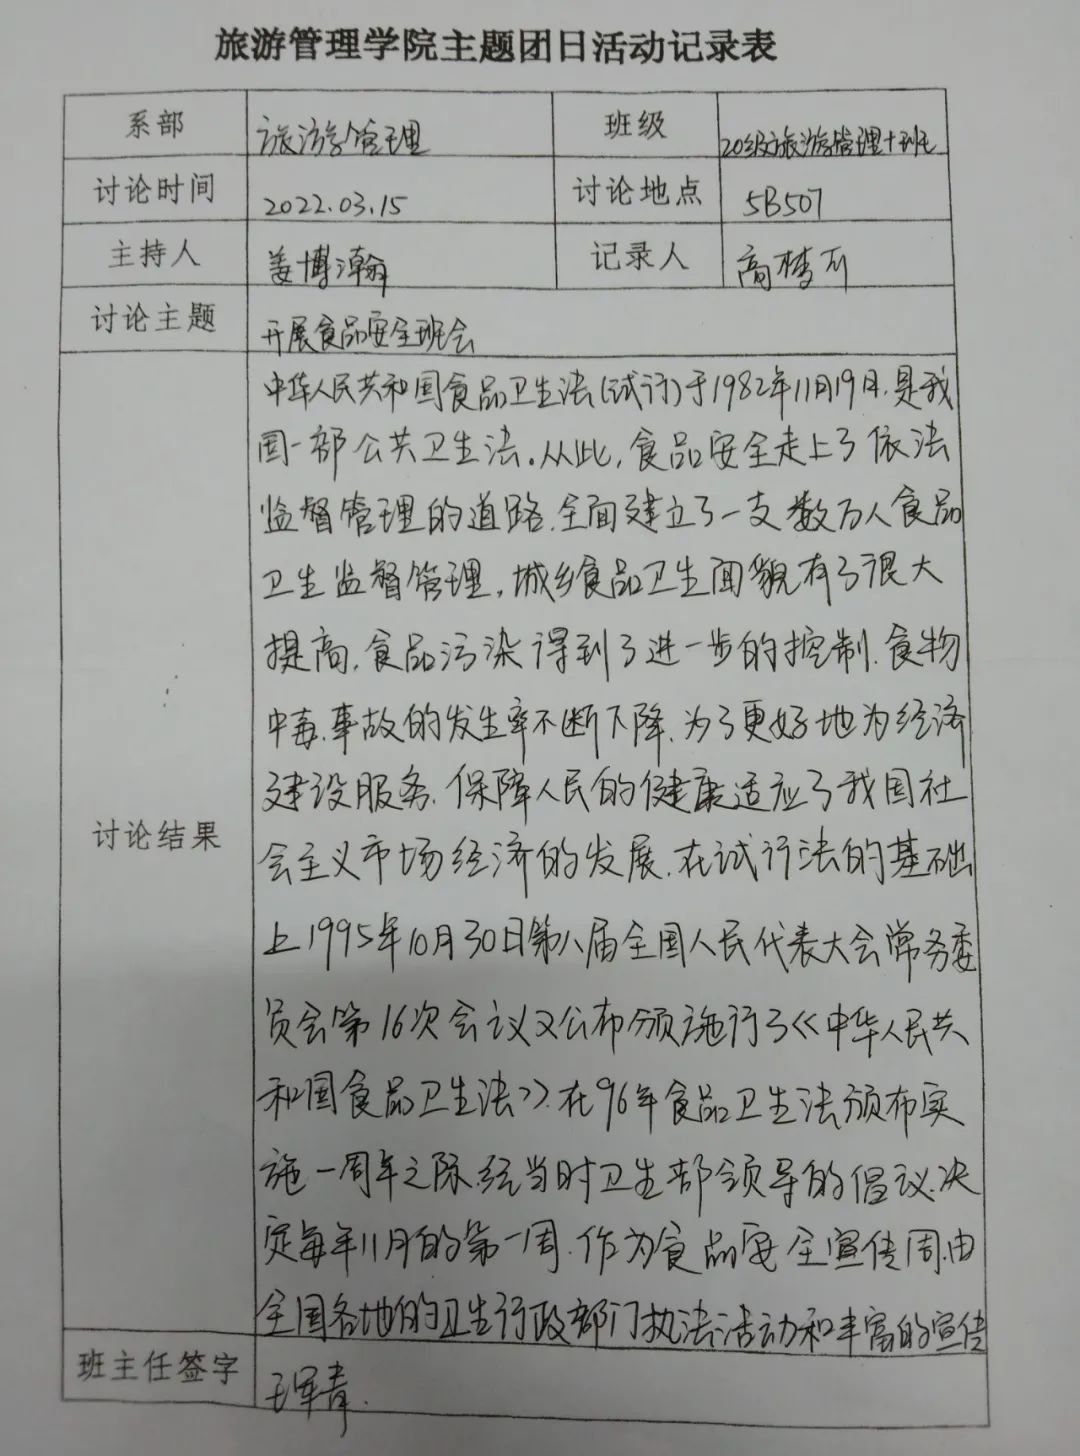 旅游管理学院主题团日活动记录表
系部 旅游管理 班级 20级旅游管理十班
讨论时间 2022.03.15 讨论地点 5B507
主持人 姜博瀚 记录人 高梦
讨论主题 开展食品安全班会
中华人民共和国食品卫生法(试行)于1982年11月19日.是我
国一部公共卫生法.从此,食品安全走上了依法
监督管理的道路.全面建立了一支数万人食品
卫生监督管理,城乡食品卫生面貌有了很大
提高,食品污染得到了进一步的控制.食物
中毒.事故的发生率不断下降.为了更好地为经济
建设服务.保障人民的健康适应了我国社
会主义市场经济的发展.在试行法的基础
讨论结果
上1995年10月30日第八届全国人民代表大会常务委
员会第16次会议又公布颁施行了《中华人民共
和国食品卫生法》.在96年食品卫生法颁布实
施一周年之际.经当时卫生部领导的倡议.决
定每年11月的第一周.作为食品安全宣传周.由
全国各地的卫生行政部门执法活动和丰富的宣传
班主任签字 王军青.